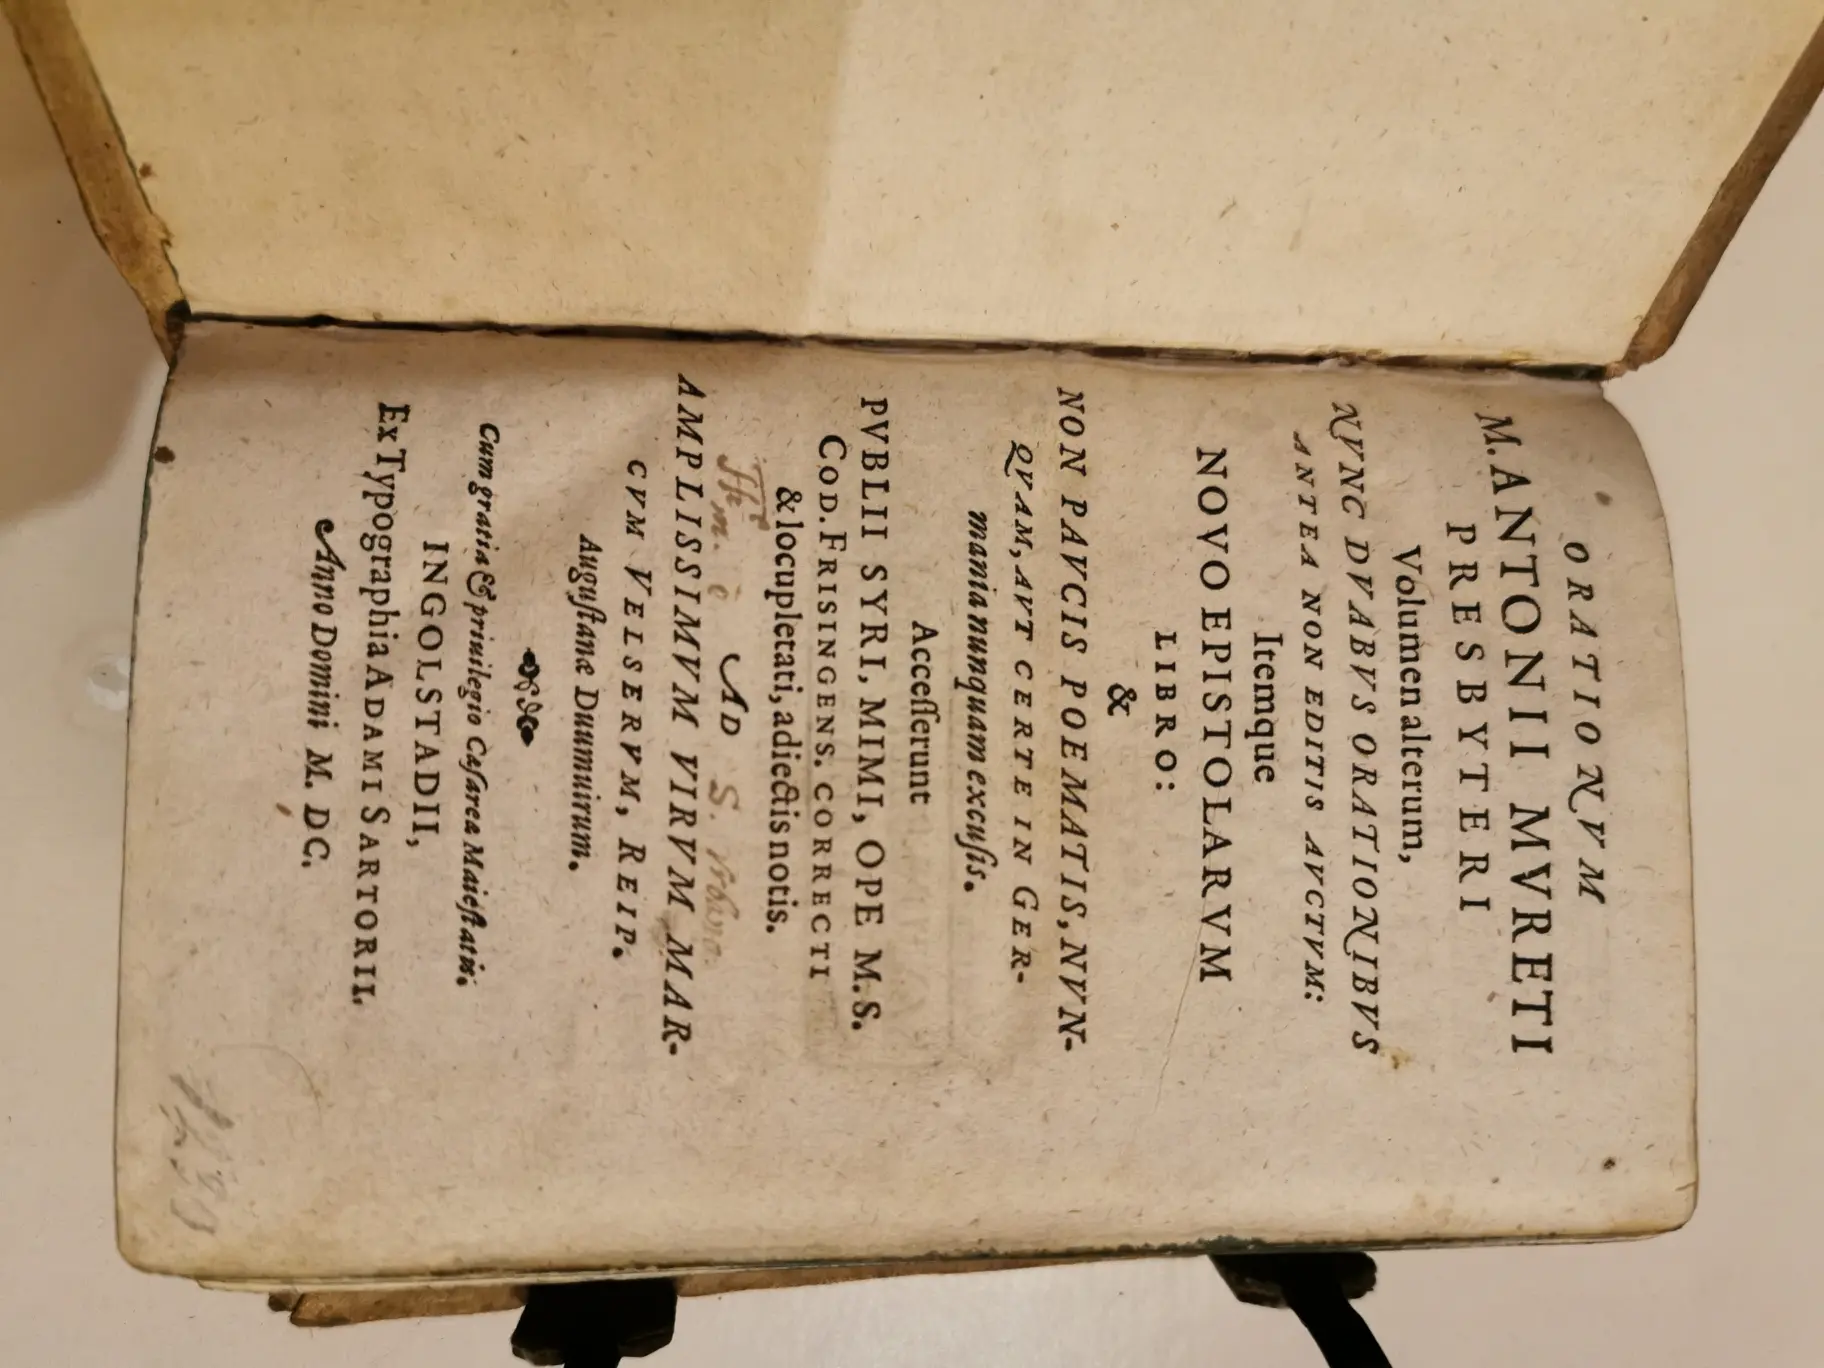 ORATIONVM
M. ANTONII MVRETI
PRESBYTERI
Volumen alterum,
NVNC DVABVS ORATIONIBVS
ANTEA NON EDITIS AVCTVM:
Itemque
NOVO EPISTOLARVM
LIBRO:
&
NON PAVCIS POEMATIS, NVN-
QVAM, AVT CERTE IN GER-
mania nunquam excuſis.
Acceſſerunt
PVBLII SYRI, MIMI, OPE M.S.
COD. FRISINGENS. CORRECTI
& locupletati, adiectis notis.
AD
AMPLISSIMVM VIRVM MAR-
CVM VELSERVM, REIP.
Auguſtanæ Duumuirum.
Cum gratia & priuilegio Cæſareæ Maieſtatis.
INGOLSTADII,
Ex Typographia ADAMI SARTORII.
Anno Domini M. DC.